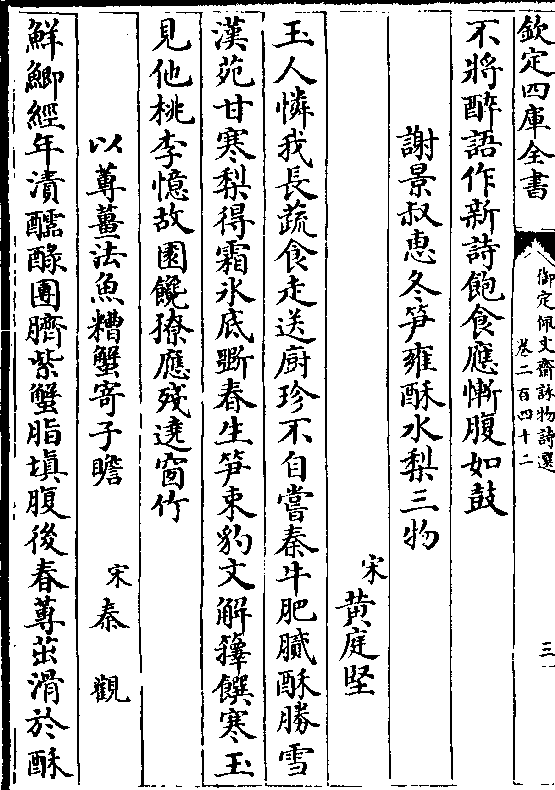 欽定四庫全書
御定佩文齋詠物詩選
卷二百四十二
三
不將醉語作新詩飽食應慚腹如鼓
謝景叔惠冬笋雍酥水梨三物
宋黄庭堅
玉人憐我長蔬食走送厨珍不自嘗秦牛肥膩酥勝雪
漢苑甘寒梨得霜氷底斸春生笋束豹文解籜饌寒玉
見他桃李憶故園饞獠應殘遶窗竹
以蓴薑法魚糟蟹寄子瞻
宋秦觀
鮮鯽經年漬醽醁團臍紫蟹脂塡腹後春蓴茁滑於酥